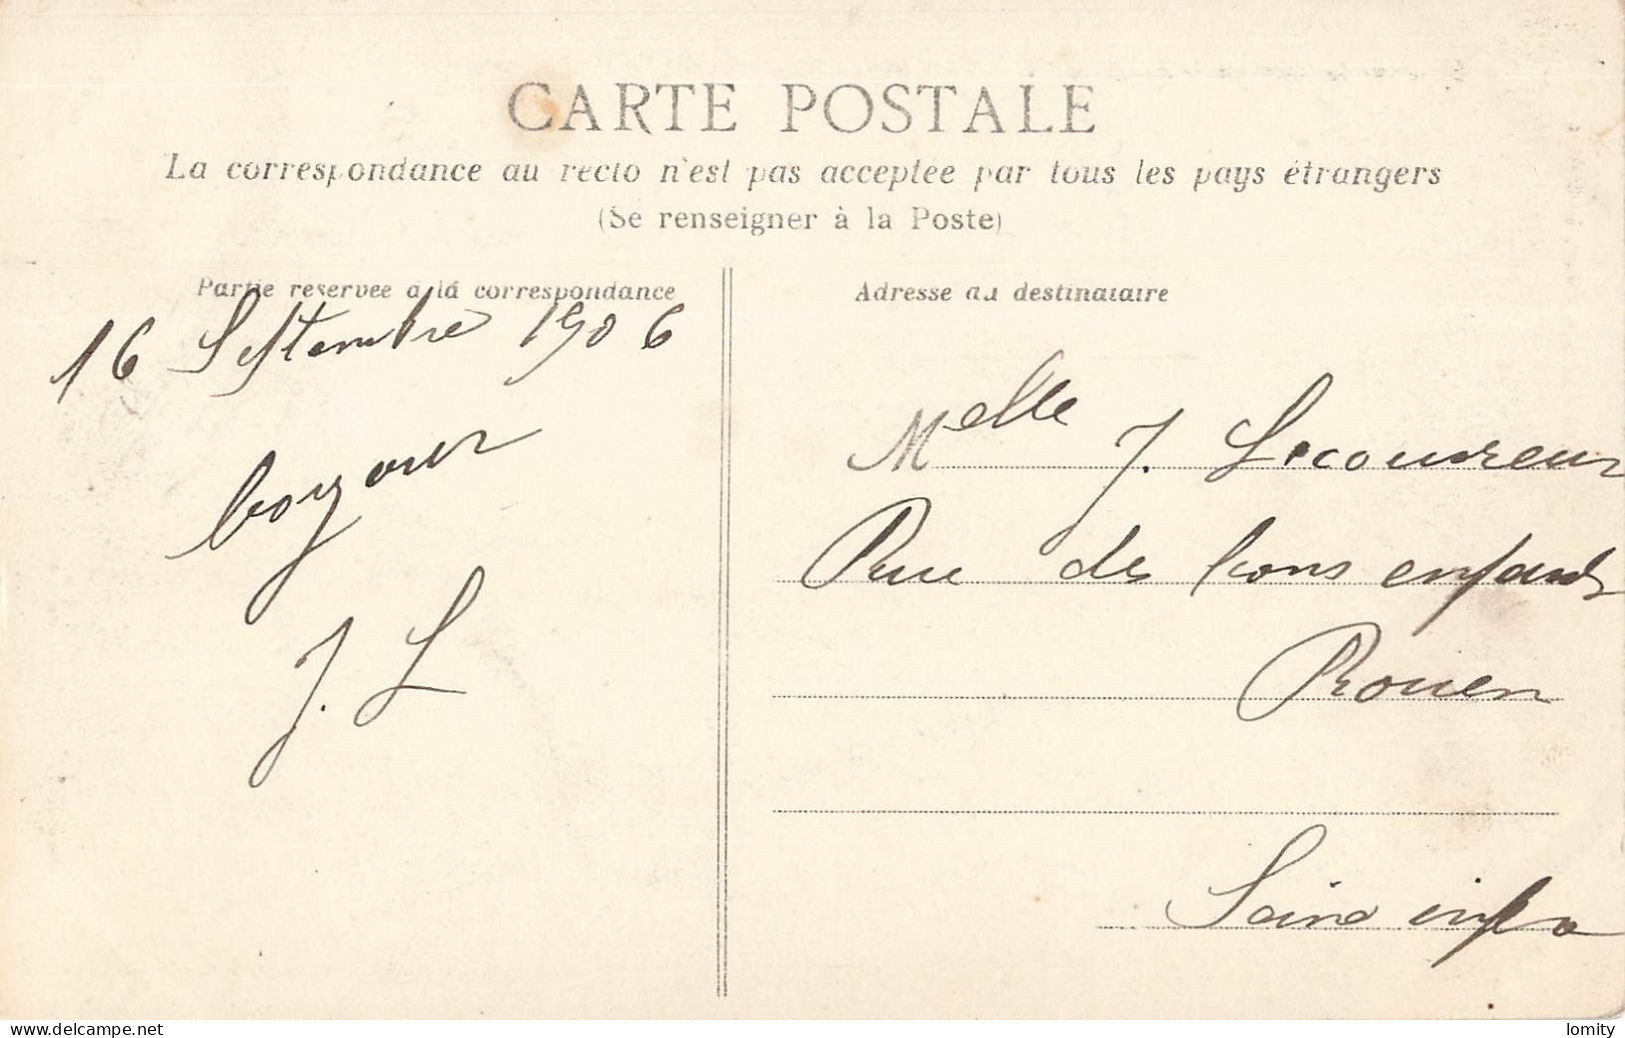 CARTE POSTALE
La correspondance au recto n'est pas acceptée par tous les pays étrangers
(Se renseigner à la Poste)
Partie réservée à la correspondance
16 Septembre 1906
boyour
J. L
Adresse du destinataire
Melle J. Lecouvreur
Rue des bons enfants
Rouen
Seine infre
www.delcampe.net
lomity